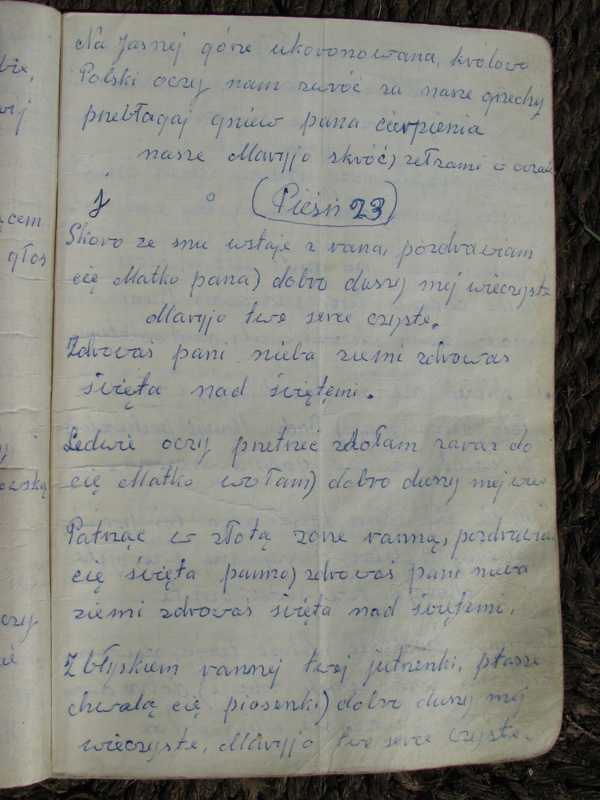 Na Jasnej górze ukoronowana, królowo
Polski oczy nam zwróć za nasze grzechy
przebłagaj gniew pana cierpienia
nasze Maryjo skróć) ze łzami w
(Pieśń 23)
Skoro ze snu wstaje z rana, pozdrawiam
cię Matko pana) dobro duszy mej wieczyste
Maryjo twe serce czyste.
Zdrowaś pani nieba ziemi zdrowaś
święta nad świętemi.
Ledwie oczy przetrzeć zdołam zaraz do
cię Matko wołam) dobro duszy mej
Patrząc w złotą zorze ranną, pozdrawiam
cię święta panno) zdrowaś pani nieba
ziemi zdrowaś święta nad świętemi.
Z błyskiem rannej twej jutrzenki, ptasze
chwalą cię piosenki) dobro duszy mej
wieczyste, Maryjo twe serce czyste.